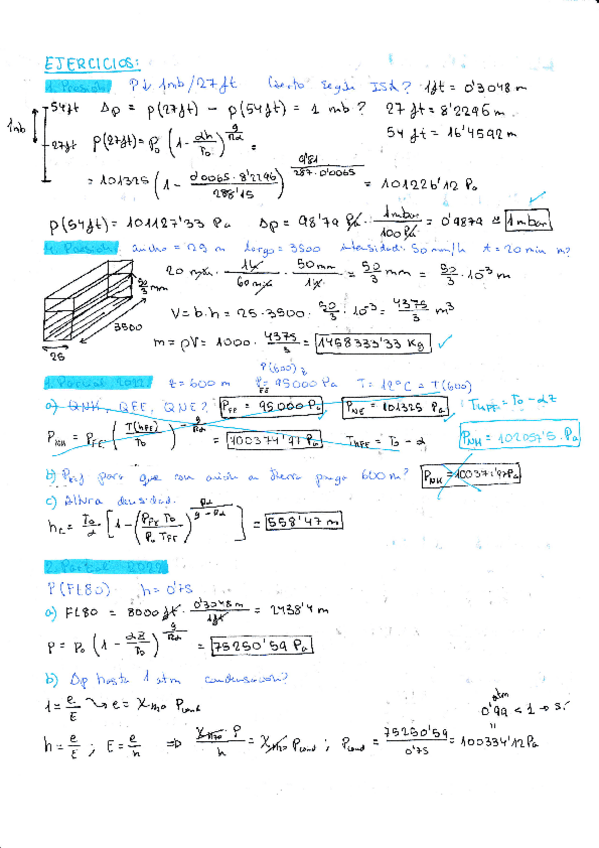 EJERCICIOS:
1. Parcial: P↓ 1mb/27ft Cierto según ISA? 1ft = 0'3048 m
54ft Δp = p(27ft) − p(54ft) = 1 mb? 27 ft = 8'2296 m
1mb 54 ft = 16'4592 m
27ft p(27ft) = P₀ (1 − αh/T₀)^(g/Rα) =
= 101325 (1 − 0'0065·8'2296/288'15)^(9'81/287·0'0065) = 101226'12 Pa
p(54ft) = 101127'33 Pa Δp = 98'79 Pa · 1mbar/100Pa = 0'9879 ≅ 1mbar
ancho = 25 m largo = 3500 intensidad: 50 mm/h t = 20 min m?
20 min · 1h/60min · 50mm/1h = 50/3 mm = 50/3 · 10⁻³ m
50/3 mm
3500
25
V = b·h = 25·3500 · 50/3 · 10⁻³ = 4375/3 m³
m = ρV = 1000 · 4375/3 = 1458333'33 Kg
P(600)
Parcial 2022 z = 600 m P_FE = 95000 Pa T = 12°C = T(600)
a) QNH, QFE, QNE? P_FE = 95000 Pa P_NE = 101325 Pa T_HFE = T₀ − αz
P_NH = P_FE (T(h_FE)/T₀)^(g/Rα) = 100374'97 Pa T_HFE = T₀ − α P_NH = 102057'5 Pa
b) para que con avión en tierra ponga 600 m? P_NH = 100371'97Pa
c) Altura densidad.
= T₀/α [1 − (P_FE T₀/P₀ T_FE)^(Rα/g−Rα)] = 558'47 m
2. Parcial 2022
P(FL80) h = 0'75
a) FL80 = 8000 ft · 0'3048 m/1ft = 2438'4 m
P = P₀ (1 − αz/T₀)^(g/Rα) = 75250'59 Pa
b) Δp hasta 1 atm condensación?
1 = e/E → e = X_H₂O P_cond
atm
0'99 < 1 → sí
h = e/E ; E = e/h ⇒ X_H₂O P/h = X_H₂O P_cond ; P_cond = 75250'59/0'75 = 100334'12 Pa